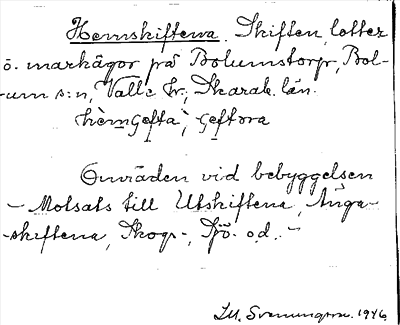 Hemskiftena. Skiften, lotter
o. markägor på Bolumstorp, Bol-
-um s:n, Valle hd, Skarab. län.
Områden vid bebyggelsen
- Motsats till Utskiftena, Änga-
-skiftena, Skogs-, Sjö- o.d. -
Svenungsson. 1946.